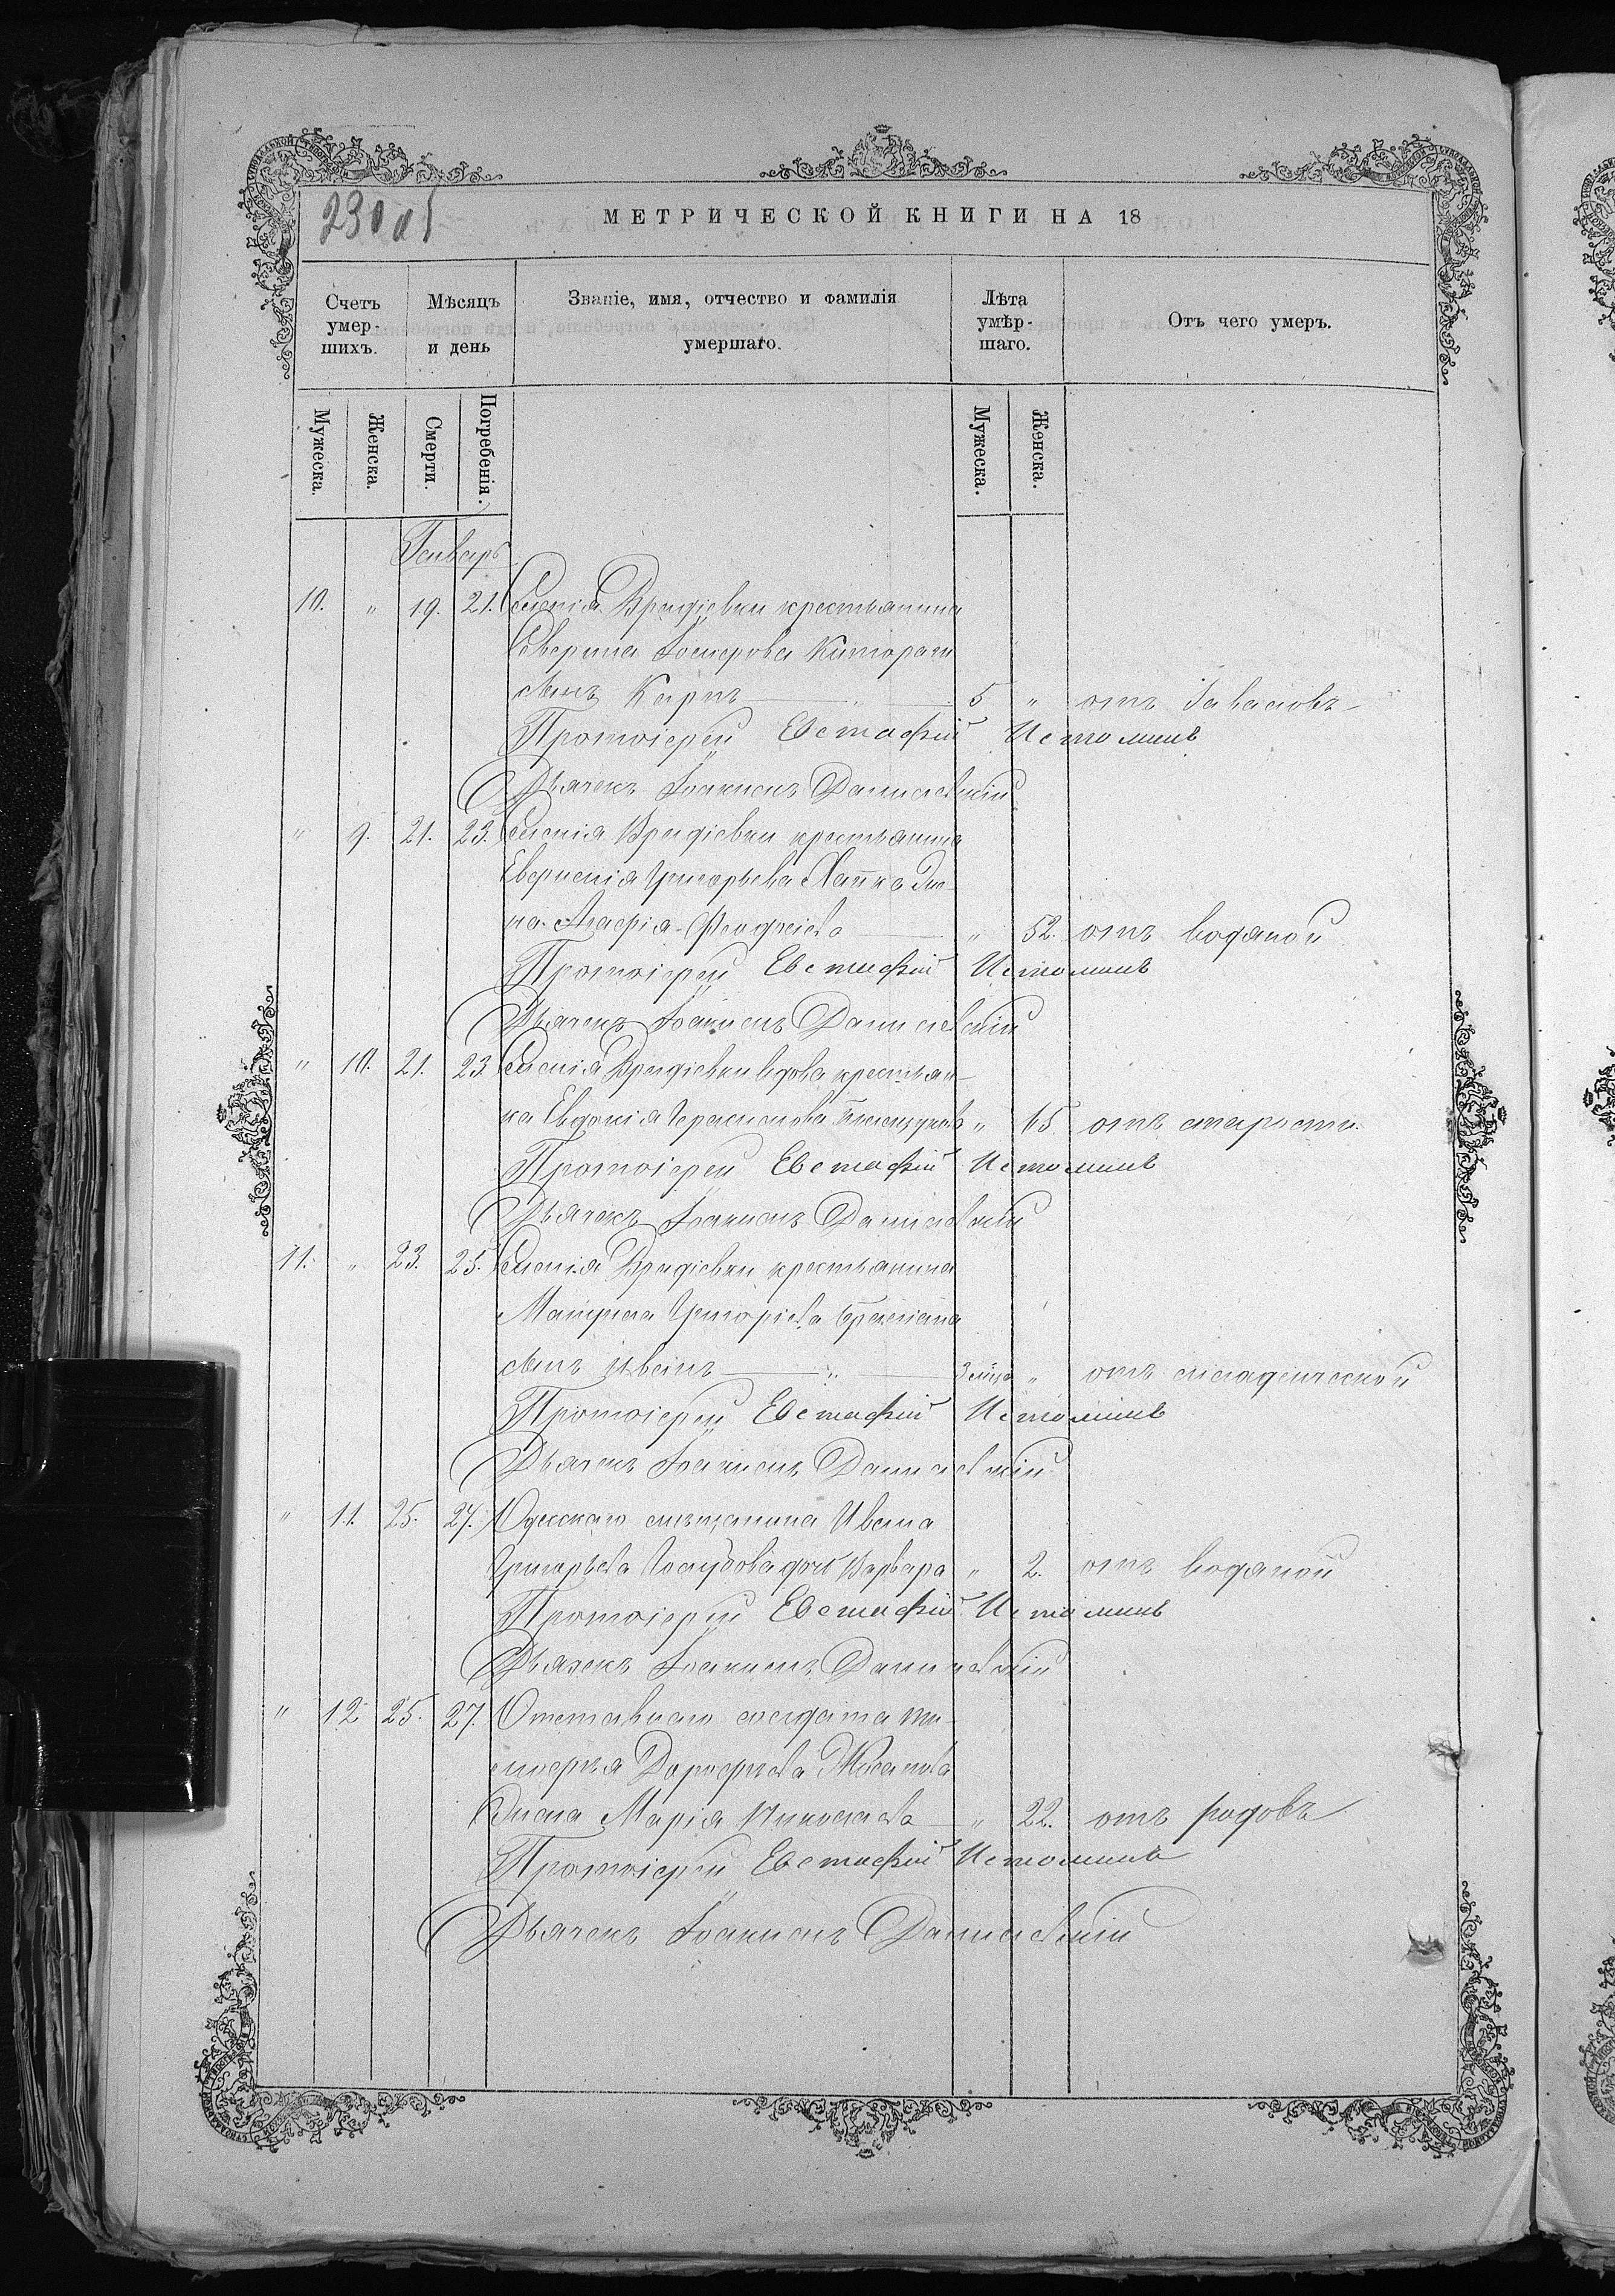 230 об
МЕТРИЧЕСКОЙ КНИГИ НА 18
Счетъ умер-шихъ.
Мѣсяцъ и день
Званіе, имя, отчество и фамилія умершаго.
Лѣта умѣр-шаго.
Отъ чего умеръ.
Мужеска. Женска. Смерти. Погребенія. Мужеска. Женска.
Генваръ
10. " 19. 21. Селенія крестьянина
сынъ Карпъ 5 " отъ
Протоіерей Евстафій Истоминъ
Дьячекъ Іоакимъ Данилевскій
" 9. 21. 23. Селенія крестьянина
Григорьева Же-
на Агафія " 52. отъ водяной
Протоіерей Евстафій Истоминъ
Дьячекъ Іоакимъ Данилевскій
" 10. 21. 23 Селенія вдова крестьян-
ка Евдокія Герасимова " 65 отъ старости.
Протоіерей Евстафій Истоминъ
Дьячекъ Іоакимъ Данилевскій
11. " 23. 25. Селенія крестьянина
Григоріева
сынъ " отъ младенческой
Протоіерей Евстафій Истоминъ
Дьячекъ Іоакимъ Данилевскій
" 11. 25. 27. Одесскаго мѣщанина Ивана
Григорьева Голубова дочь Варвара " 2. отъ водяной
Протоіерей Евстафій Истоминъ
Дьячекъ Іоакимъ Данилевскій
" 12 25. 27. Отставнаго солдата Ти-
мофея Дорофеева
Жена Марія Николаева " 22. отъ родовъ
Протоіерей Евстафій Истоминъ
Дьячекъ Іоакимъ Данилевскій